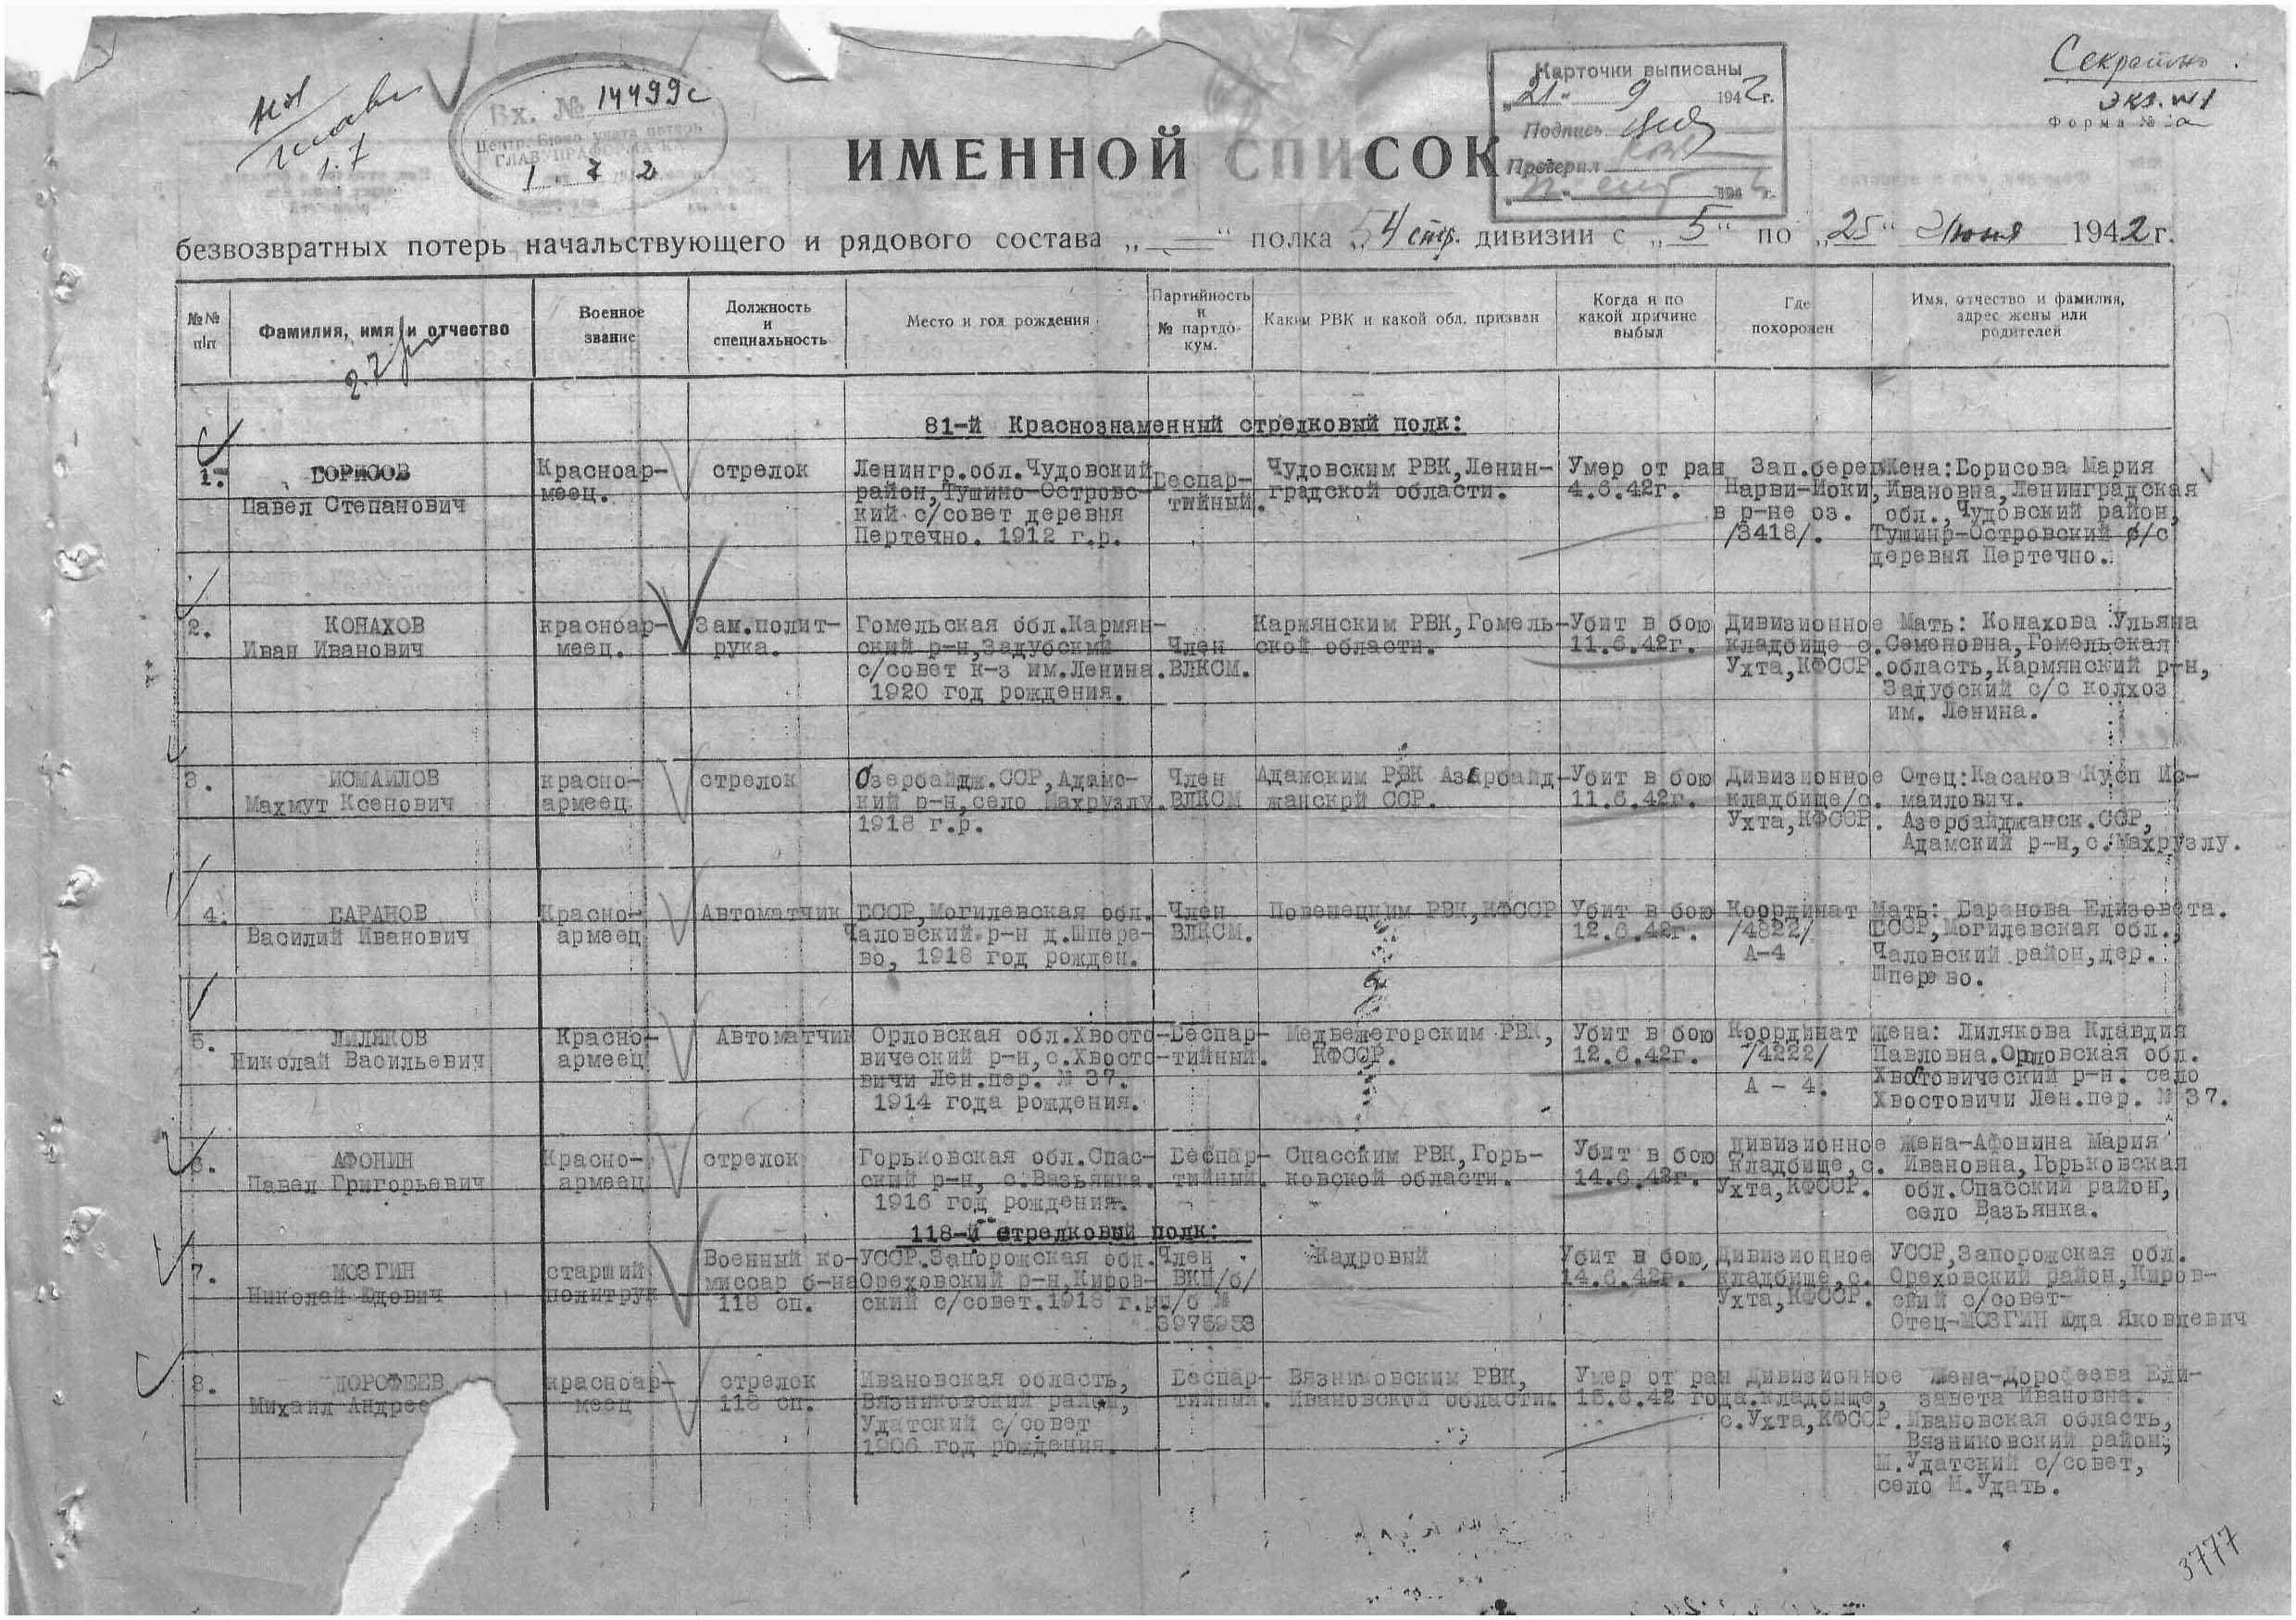 Секретно.
экз. №1
Форма № 2а
1.7
Вх. № 14499с
Центр. Бюро учета потерь
1 7 2
Карточки выписаны
„21“ 9 1942г.
Подпись
Проверил
ИМЕННОЙ СПИСОК
безвозвратных потерь начальствующего и рядового состава „—“ полка „54 стр. дивизии с „5“ по „25“ Июня 1942г.
№№ п|п
Фамилия, имя и отчество
Военное звание
Должность и специальность
Место и год рождения
Партийность и № партдокум.
Каким РВК и какой обл. призван
Когда и по какой причине выбыл
Где похоронен
Имя, отчество и фамилия, адрес жены или родителей
2.7
81-й Краснознаменный стрелковый полк:
1.
БОРИСОВ
Павел Степанович
Красноар-
меец.
стрелок
Ленингр.обл.Чудовский
район,Тушино-Островс-
кий с/совет деревня
Пертечно. 1912 г.р.
Беспар-
тийный.
Чудовским РВК,Ленин-
градской области.
Умер от ран
4.6.42г.
Зап.берег
Нарви-Йоки,
в р-не оз.
/3418/.
Жена:Борисова Мария
Ивановна,Ленинградская
обл.,Чудовский район,
Тушинр-Островский с/с
деревня Пертечно.
2.
КОНАХОВ
Иван Иванович
красноар-
меец.
Зам.полит-
рука.
Гомельская обл.Кармян-
ский р-н,Задубский
с/совет к-з им.Ленина.
1920 год рождения.
Член
ВЛКСМ.
Кармянским РВК,Гомель-
ской области.
Убит в бою
11.6.42г.
Дивизионное
кладбище с.
Ухта,КФССР.
Мать: Конахова Ульяна
Семеновна,Гомельская
область,Кармянский р-н,
Задубский с/с колхоз
им. Ленина.
3.
ИСМАИЛОВ
Махмут Ксенович
красно-
армеец
стрелок
Озербайдж.ССР,Адамс-
кий р-н,село Махрузлу.
1918 г.р.
Член
ВЛКСМ
Адамским РВК Азербайд-
жанскрй ССР.
Убит в бою
11.6.42г.
Дивизионное
кладбище/с.
Ухта,КФССР.
Отец:Касанов Кусп Ис-
маилович.
Азербайджанск.ССР,
Адамский р-н,с.Махрузлу.
4.
БАРАНОВ
Василий Иванович
Красно-
армеец
Автоматчик
БССР,Могилевская обл.
Чаловский р-н д.Шпере-
во, 1918 год рожден.
Член
ВЛКСМ.
Повенецким РВК,КФССР
Убит в бою
12.6.42г.
Координат
/4822/
А-4
Мать: Баранова Елизовета.
БССР,Могилевская обл.,
Чаловский район,дер.
Шперево.
5.
ЛИЛЯКОВ
Николай Васильевич
Красно-
армеец
Автоматчик
Орловская обл.Хвосто-
вический р-н,с.Хвосто-
вичи Лен.пер. № 37.
1914 года рождения.
Беспар-
тийный.
Медвежегорским РВК,
КФССР.
Убит в бою
12.6.42г.
Координат
/4222/
А - 4.
Жена: Лилякова Клавдия
Павловна.Орловская обл.
Хвостовический р-н. село
Хвостовичи Лен.пер. № 37.
6.
АФОНИН
Павел Григорьевич
Красно-
армеец
стрелок
Горьковская обл.Спас-
ский р-н, с.Вазьянка.
1916 год рождения.
Беспар-
тийный.
Спасским РВК,Горь-
ковской области.
Убит в бою
14.6.42г.
Дивизионное
кладбище,с.
Ухта,КФССР.
Жена-Афонина Мария
Ивановна,Горьковская
обл.Спасский район,
село Вазьянка.
118-й стрелковый полк:
7.
МОЗГИН
Николай Юдович
старший
политрук
Военный ко-
миссар б-на
118 сп.
УССР.Запорожская обл.
Ореховский р-н,Киров-
ский с/совет.1918 г.р.
Член
ВКП/б/
п/б №
3975953
Кадровый
Убит в бою,
14.6.42г.
Дивизионное
кладбище,с.
Ухта,КФССР.
УССР,Запорожская обл.
Ореховский район,Киров-
ский с/совет-
Отец-МОЗГИН Юда Яковлевич
8.
ДОРОФЕЕВ
Михаил Андрее
красноар-
меец
стрелок
118 сп.
Ивановская область,
Вязниковский район,
Удатский с/совет
1906 год рождения.
Беспар-
тийный.
Вязниковским РВК,
Ивановской области.
Умер от ран
15.6.42 года.
Дивизионное
кладбище,
с.Ухта,КФССР.
Жена-Дорофеева Ели-
завета Ивановна.
Ивановская область,
Вязниковский район,
М.Удатский с/совет,
село М.Удать.
3777